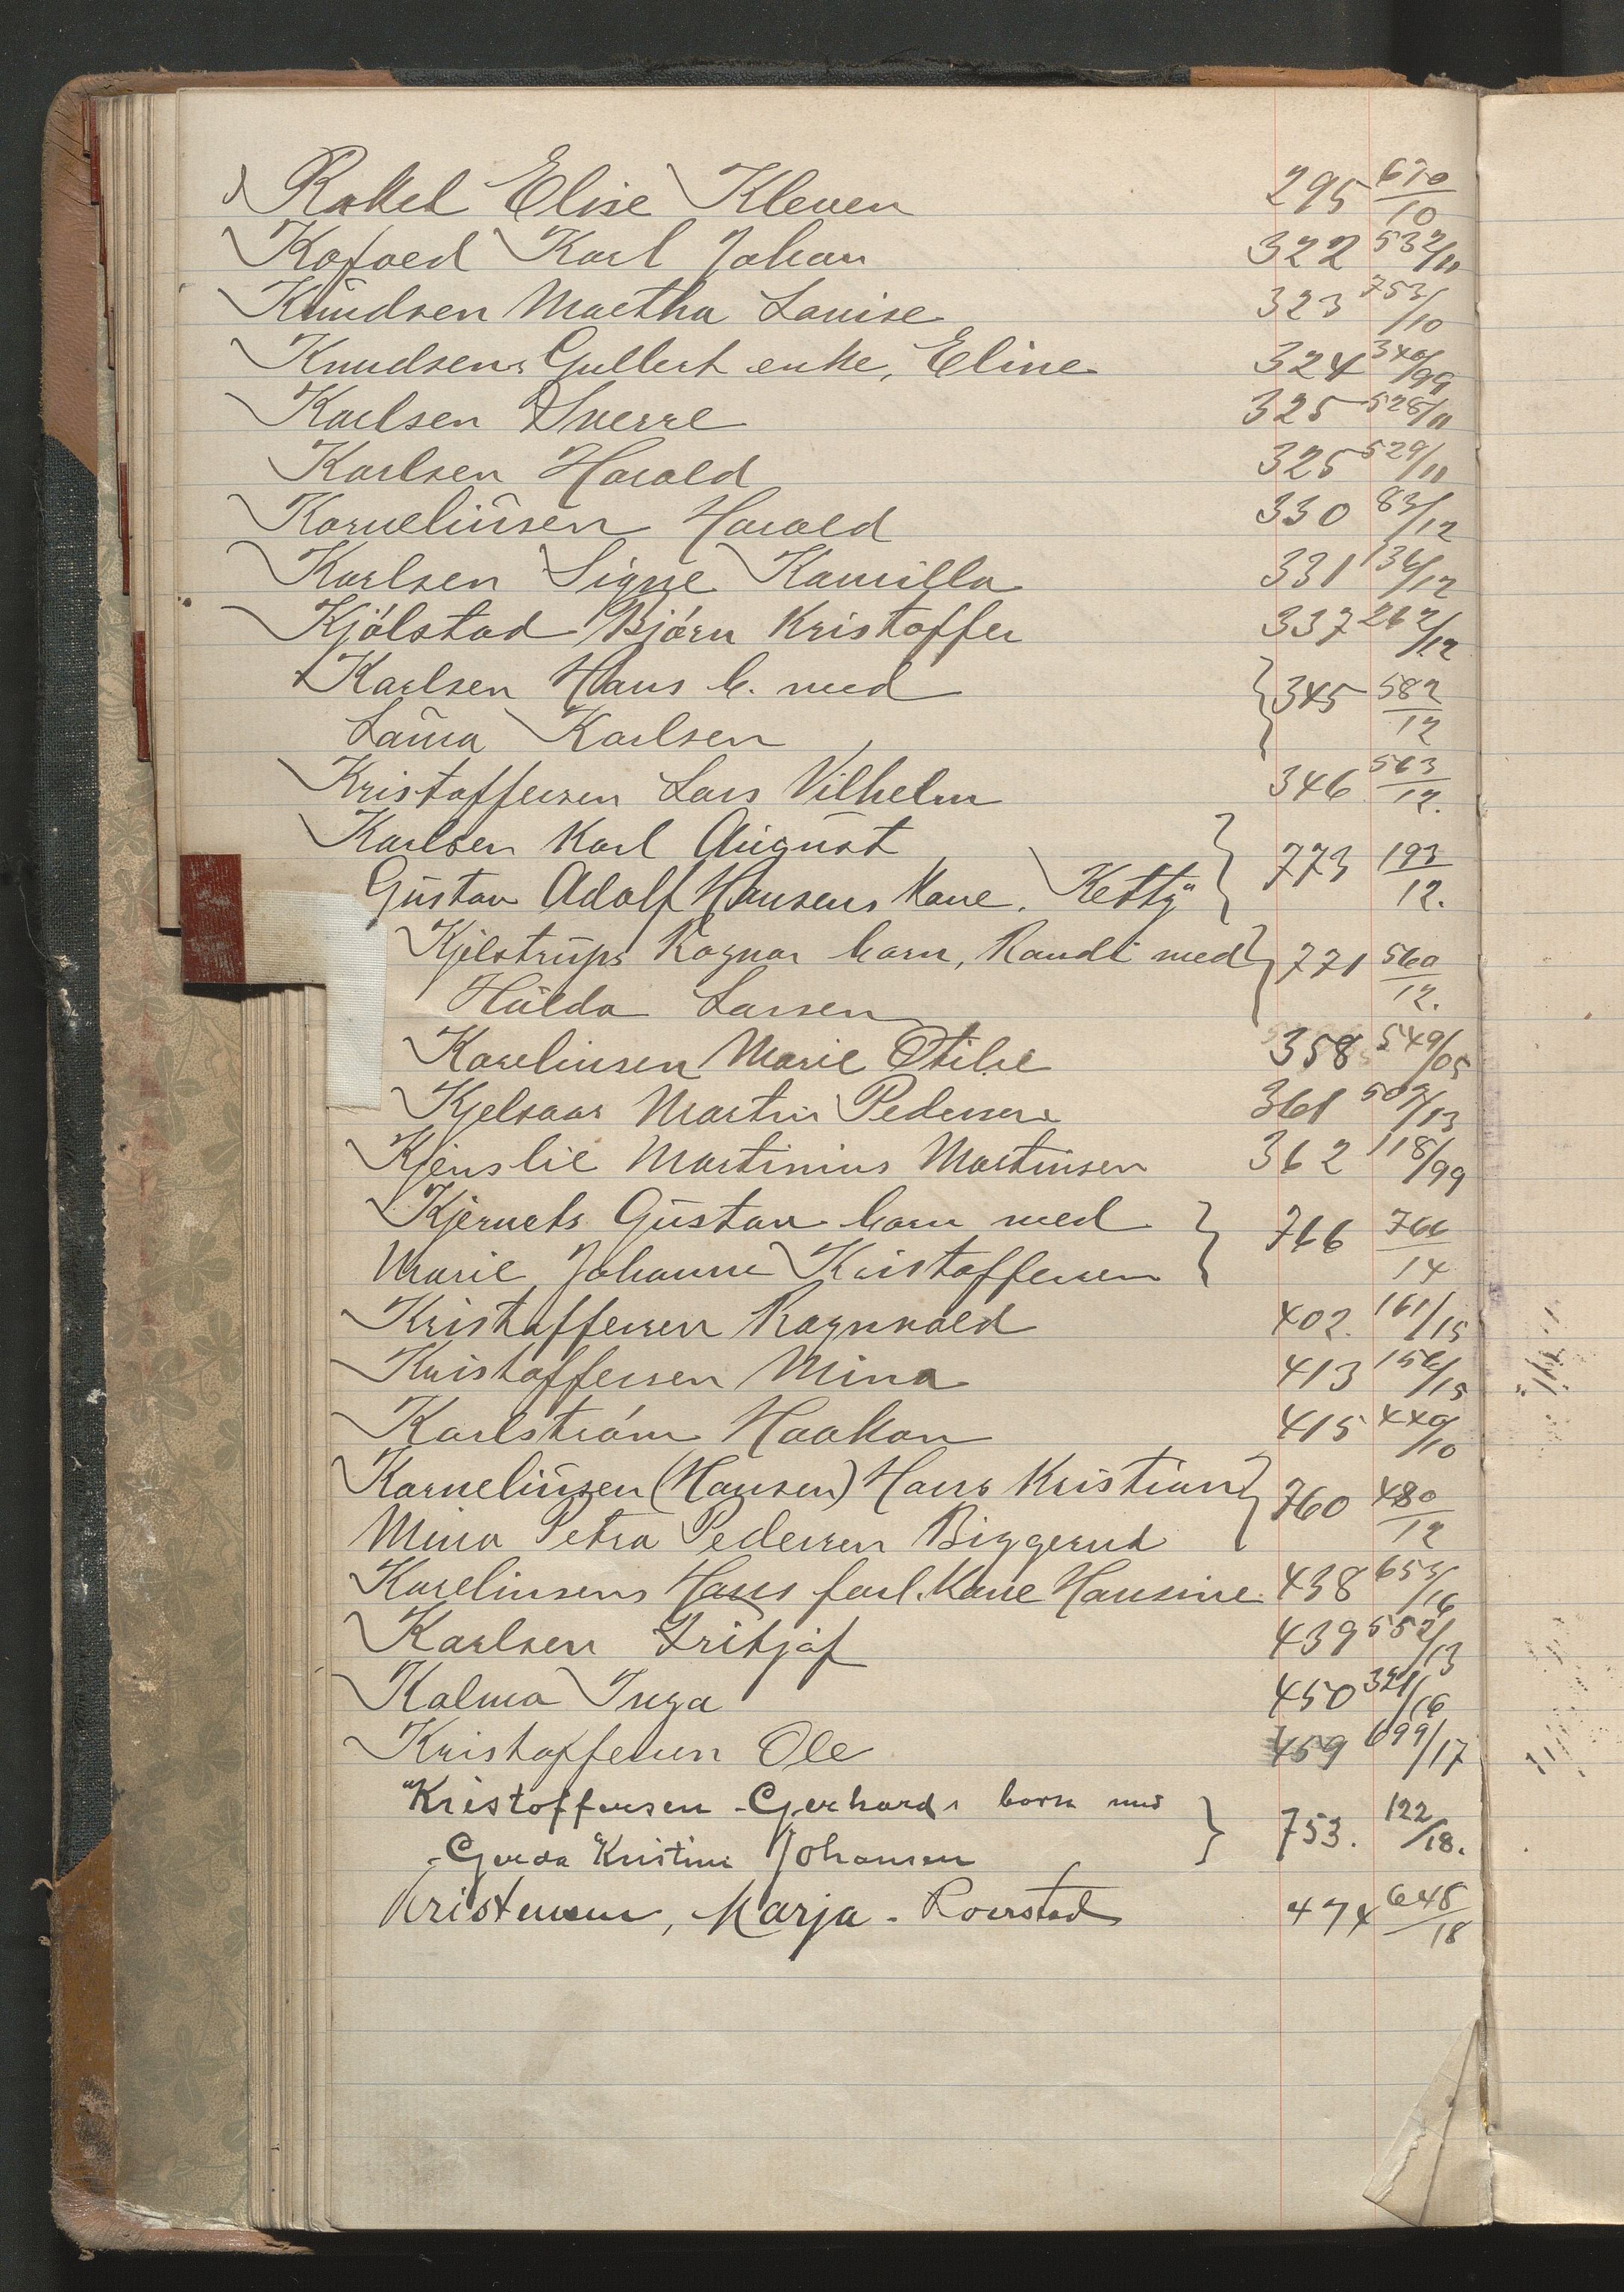 Rakel Elise Kleven 295 670/10
Kofoed Karl Johan 322 532/11
Knudsen Martha Louise 323 753/10
Knudsens Gullert enke, Eline 324 340/99
Karlsen Sverre 325 528/11
Karlsen Harald 325 529/11
Korneliusen Harald 330 83/12
Karlsen Signe Kamilla 331 136/12
Kjölstad Björn Kristoffer 337 262/12
Karlsen Hans C. med 345 582/12
Laura Karlsen
Kristoffersen Lars Vilhelm 346 563/12.
Karlsen Karl August 773 193/12.
Gustav Adolf Hansens Kone. Ketty"
Kjelstrups Ragnar barn, Randi med 771 560/12.
Hulda Larsen
Korelinsen Marie Otilie 358 549/05
Kjelsaas Martin Pedersen 361 502/13
Kjenslie Martinius Martinsen 362 118/99
Kjernets Gustav barn med 766 766/14
Marie Johanne Kristoffersen
Kristoffersen Ragnvald 402. 161/15
Kristoffersen Mina 413 156/15
Karlström Haakon 415 440/10
Korneliusen (Hansen) Hans Kristian 760 480/12
Mina Petra Pedersen Biggerud
Korelinsens Hans forl. Kone Hansine 438 653/16
Karlsen Fritjof 439 552/13
Kalma Inga 450 321/16
Kristoffersen Ole 459 699/17
"Kristoffersen Gerhards barn med 753. 122/18.
Gerda Kristine Johansen
Kristensen, Marja - Roerstad 474 648/18